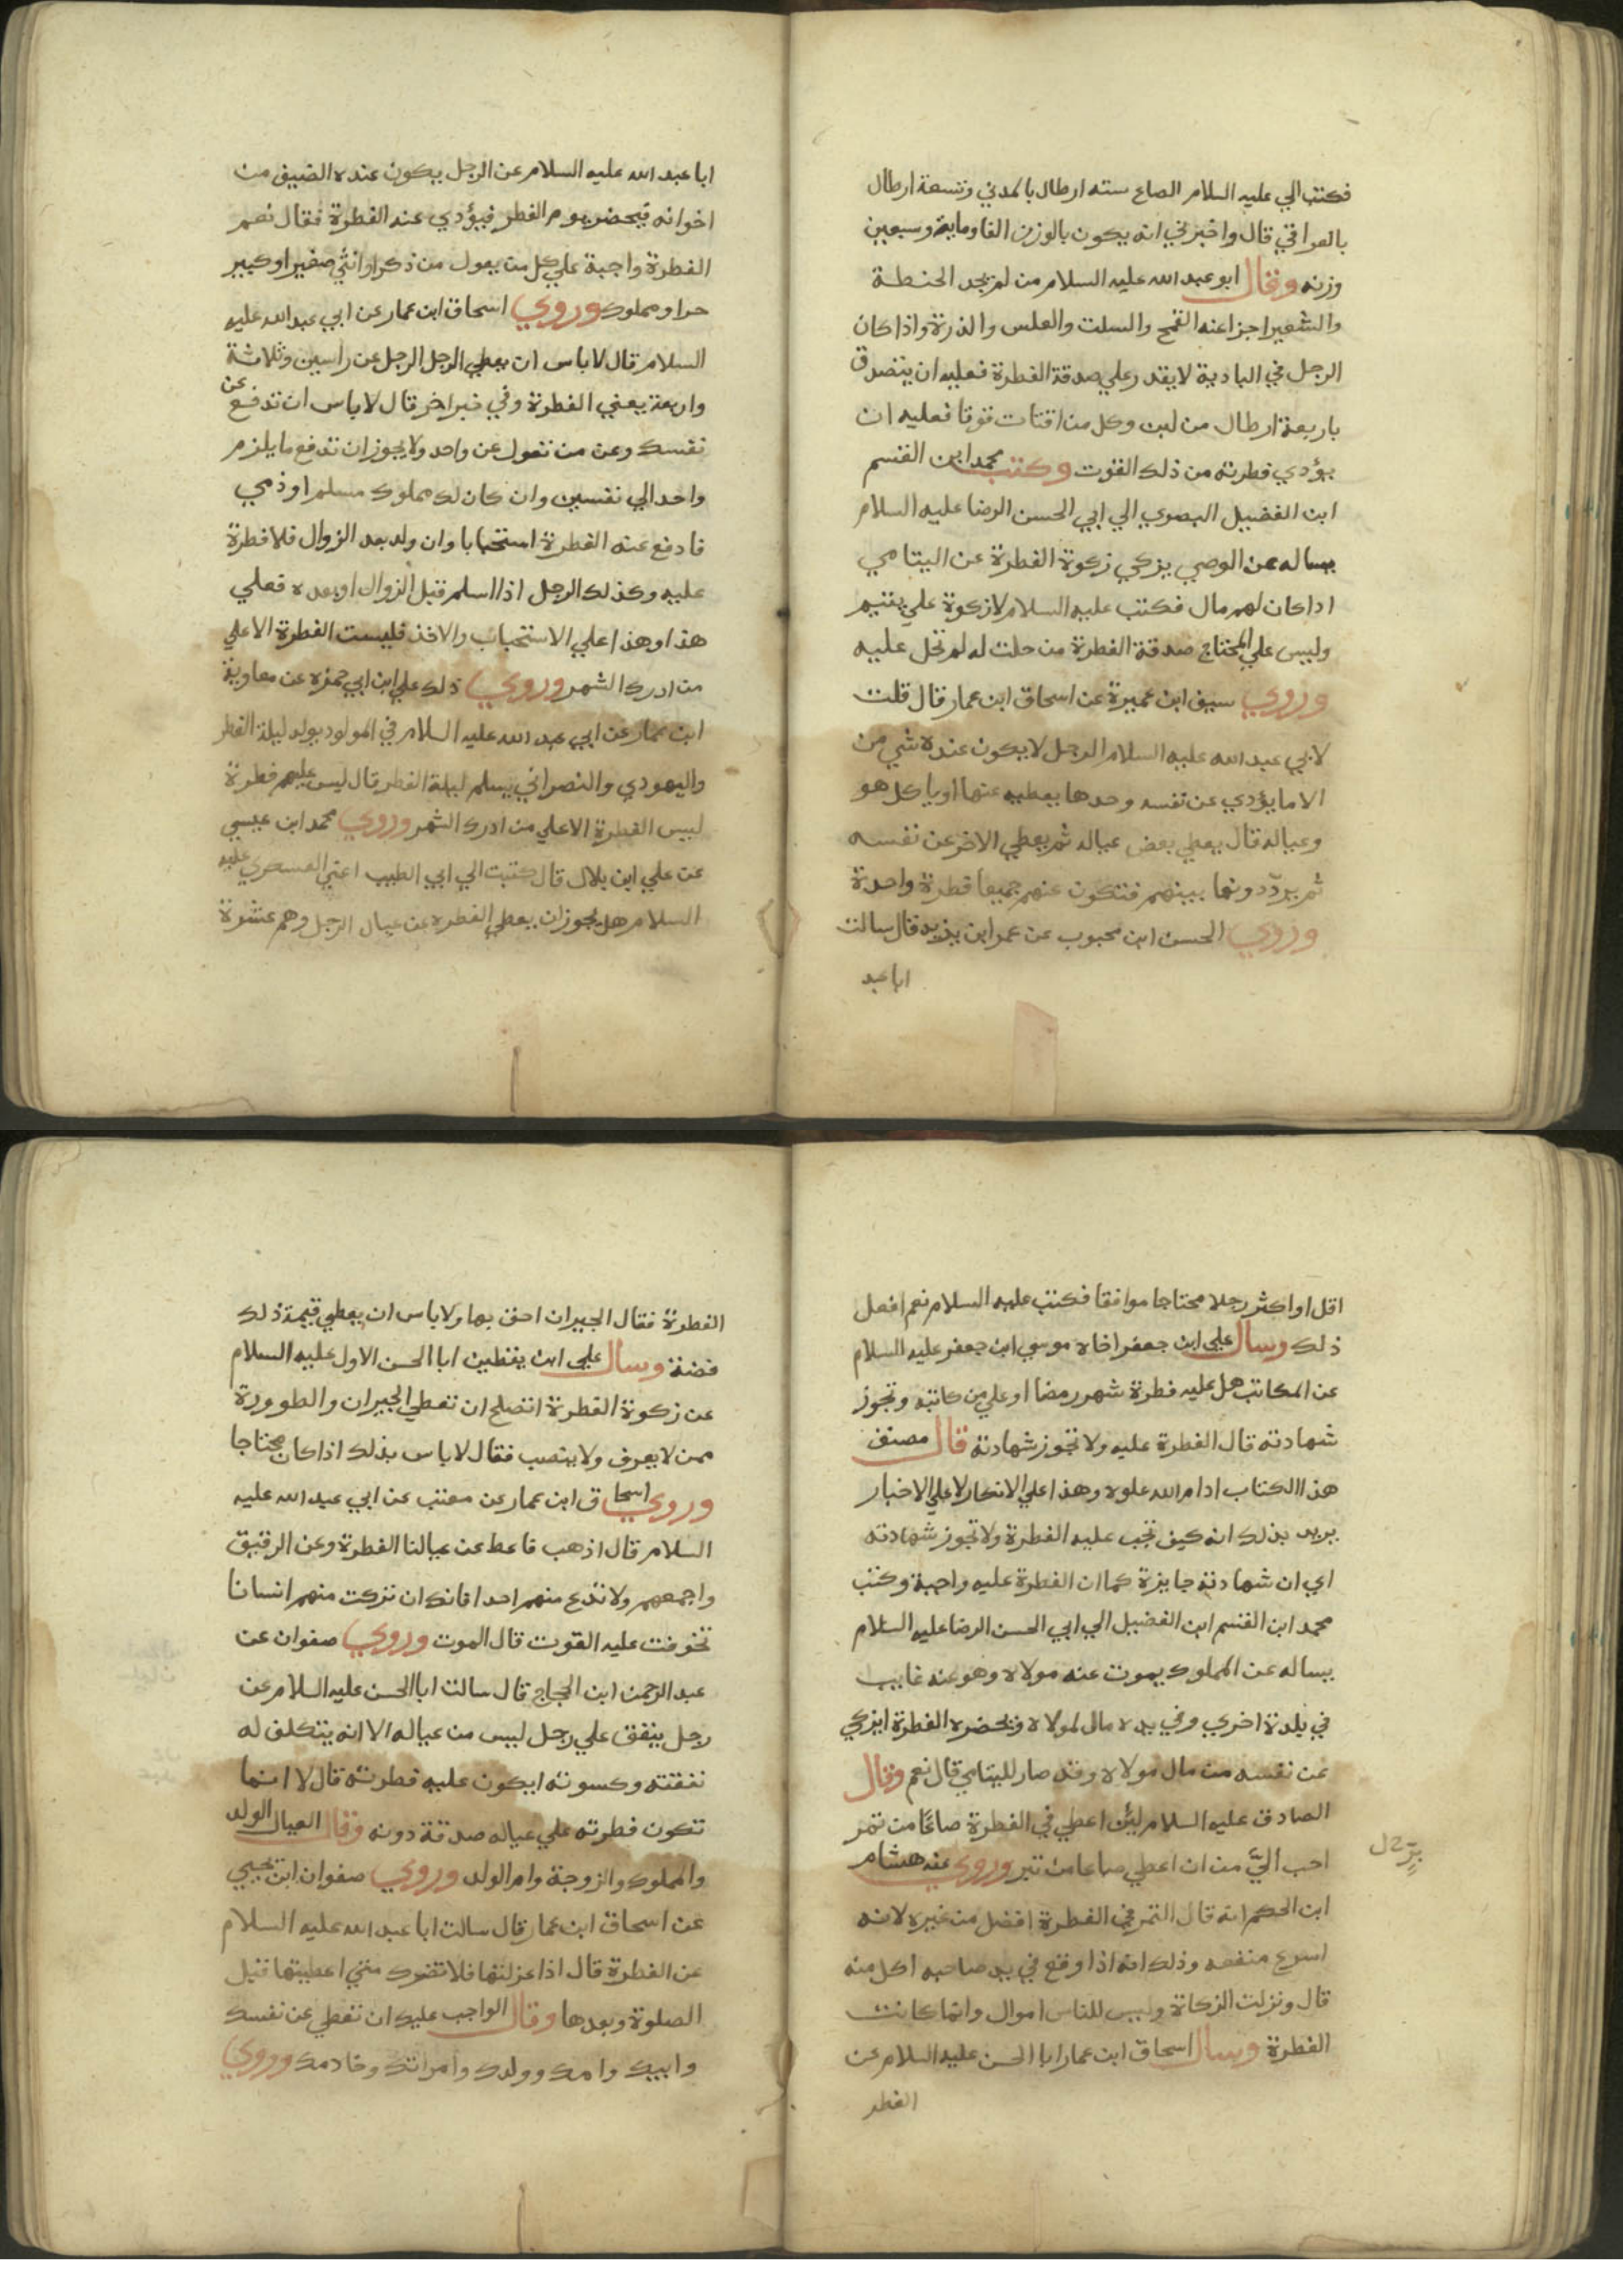 فكتب الي عليه السلام الصاع سته ارطال بالمدني وتسعة ارطال
بالعراقي قال واخبرني انه يكون بالوزن الفا وماية وسبعين
وزنه وقال ابو عبد الله عليه السلام من لم يجد الحنطة
والشعير اجزا عنه القمح والسلت والعلس والذرة واذا كان
الرجل في البادية لا يقدر علي صدقة الفطرة فعليه ان يتصدق
باربعة ارطال من لبن وكل من اقتات قوتا فعليه ان
يؤدي فطرته من ذلك القوت وكتب محمد ابن القسم
ابن الفضيل البصري الي ابي الحسن الرضا عليه السلام
يساله عن الوصي يزكي زكوة الفطرة عن اليتامي
اذا كان لهم مال فكتب عليه السلام لا زكوة علي يتيم
وليس علي المحتاج صدقة الفطرة من حلت له لم تحل عليه
وروي سيف ابن عميرة عن اسحاق ابن عمار قال قلت
لابي عبد الله عليه السلام الرجل لا يكون عنده شي من
الا ما يؤدي عن نفسه وحدها يعطيه عنها او ياكل هو
وعياله قال يعطي بعض عياله ثم يعطي الاخر عن نفسه
ثم يرددونها بينهم فتكون عنهم جميعا فطرة واحدة
وروي الحسن ابن محبوب عن عمر ابن يزيد قال سالت
ابا عبد
ابا عبد الله عليه السلام عن الرجل يكون عنده الضيف من
اخوانه فيحضر يوم الفطر فيؤدي عنه الفطرة فقال نعم
الفطرة واجبة علي كل من يعول من ذكر او انثي صغير او كبير
حر او مملوك وروي اسحاق ابن عمار عن ابي عبد الله عليه
السلام قال لا باس ان يعطي الرجل الرجل عن راسين وثلاثة
واربعة يعني الفطرة وفي خبر اخر قال لا باس ان تدفع عن
نفسك وعن من تعول عن واحد ولا يجوز ان تدفع ما يلزم
واحد الي نفسين وان كان لك مملوك مسلم او ذمي
فادفع عنه الفطرة استحبابا وان ولد بعد الزوال فلا فطرة
عليه وكذلك الرجل اذا اسلم قبل الزوال او بعده فعلي
هذا وهذا علي الاستحباب والاخذ فليست الفطرة الا علي
من ادرك الشهر وروي ذلك علي ابن ابي حمزه عن معاوية
ابن عمار عن ابي عبد الله عليه السلام في المولود يولد ليلة الفطر
واليهودي والنصراني يسلم ليلة الفطر قال ليس عليهم فطرة
ليس الفطرة الا علي من ادرك الشهر وروي محمد ابن عيسي
عن علي ابن بلال قال كتبت الي ابي الطيب اعني العسكري عليه
السلام هل يجوز ان يعطي الفطره عن عيال الرجل وهم عشرة
اقل او اكثر رجلا محتاجا موافقا فكتب عليه السلام نعم افعل
ذلك وسال علي ابن جعفر اخاه موسي ابن جعفر عليه السلام
عن المكاتب هل عليه فطرة شهر رمضا او علي من كاتبه وتجوز
شهادته قال الفطرة عليه ولا تجوز شهادته قال مصنف
هذا الكتاب ادام الله علوه وهذا علي الانكار لا علي الاخبار
يريد بذلك انه كيف تجب عليه الفطرة ولا تجوز شهادته
اي ان شهادته جايزة كما ان الفطرة عليه واجبة وكتب
محمد ابن القسم ابن الفضيل الي ابي الحسن الرضا عليه السلام
يساله عن المملوك يموت عنه مولاه وهو عنه غايب
في بلدة اخري وفي يده مال لمولاه ويحضره الفطرة ايزكي
عن نفسه من مال مولاه وقد صار لليتامي قال نعم وقال
الصادق عليه السلام لئن اعطي في الفطرة صاعا من تمر
احب اليّ من ان اعطي صاعا من تبر وروي عنه هشام
ابن الحكم انه قال التمر في الفطرة افضل من غيره لانه
اسرع منفعه وذلك انه اذا وقع في يد صاحبه اكل منه
قال ونزلت الزكاة وليس للناس اموال وانما كانت
الفطرة وسال اسحاق ابن عمار ابا الحسن عليه السلام عن
الفطر
الفطرة فقال الجيران احق بها ولا باس ان يعطي قيمة ذلك
فضة وسال علي ابن يقطين ابا الحسن الاول عليه السلام
عن زكوة الفطرة اتصلح ان تعطي الجيران والطوورة
ممن لا يعرف ولا ينصب فقال لا باس بذلك اذا كان محتاجا
وروي اسحاق ابن عمار عن معتب عن ابي عبد الله عليه
السلام قال اذهب فاعط عن عيالنا الفطرة وعن الرقيق
واجمعهم ولا تدع منهم احدا فانك ان تركت منهم انسانا
تخوفت عليه الفوت قال الموت وروي صفوان عن
عبد الرحمن ابن الحجاج قال سالت ابا الحسن عليه السلام عن
رجل ينفق علي رجل ليس من عياله الا انه يتكلف له
نفقته وكسوته ايكون عليه فطرته قال لا انما
تكون فطرته علي عياله صدقة دونه وقال العيال الولد
والمملوك والزوجة وام الولد وروي صفوان ابن يحيي
عن اسحاق ابن عمار قال سالت ابا عبد الله عليه السلام
عن الفطرة قال اذا عزلتها فلا تضرك متي اعطيتها قبل
الصلوة وبعدها وقال الواجب عليك ان تعطي عن نفسك
وابيك وامك وولدك وامراتك وخادمك وروي